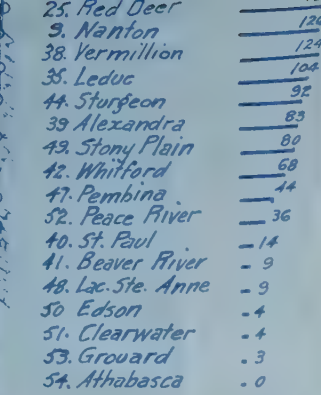 25. Red Deer
9. Nanton 126
38. Vermillion 124
35. Leduc 104
44. Sturgeon 92
39 Alexandra 83
49. Stony Plain 80
42. Whitford 68
47. Pembina 44
52. Peace River 36
40. St. Paul 14
41. Beaver River 9
48. Lac. Ste. Anne 9
50 Edson 4
51. Clearwater 4
53. Grouard 3
54. Athabasca 0